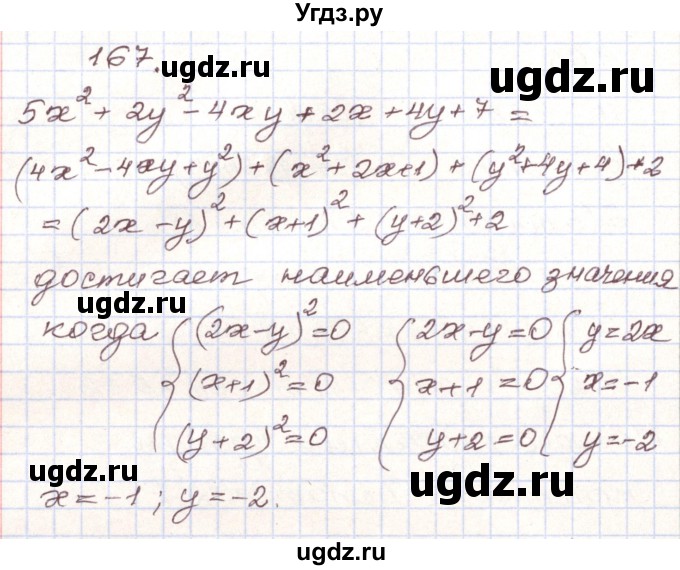 Угдз.ру
167.
ugdz.ru
ugdz.ru
5x² + 2y² - 4xy + 2x + 4y + 7 =
(4x² - 4xy + y²) + (x² + 2x + 1) + (y² + 4y + 4) + 2
= (2x - y)² + (x + 1)² + (y + 2)² + 2
достигает наименьшего значения
ugdz.ru
когда { (2x - y)² = 0 { 2x - y = 0 { y = 2x
(x + 1)² = 0 x + 1 = 0 x = -1
(y + 2)² = 0 y + 2 = 0 y = -2
ugdz.ru
ugdz.ru
x = -1; y = -2.
ugdz.ru